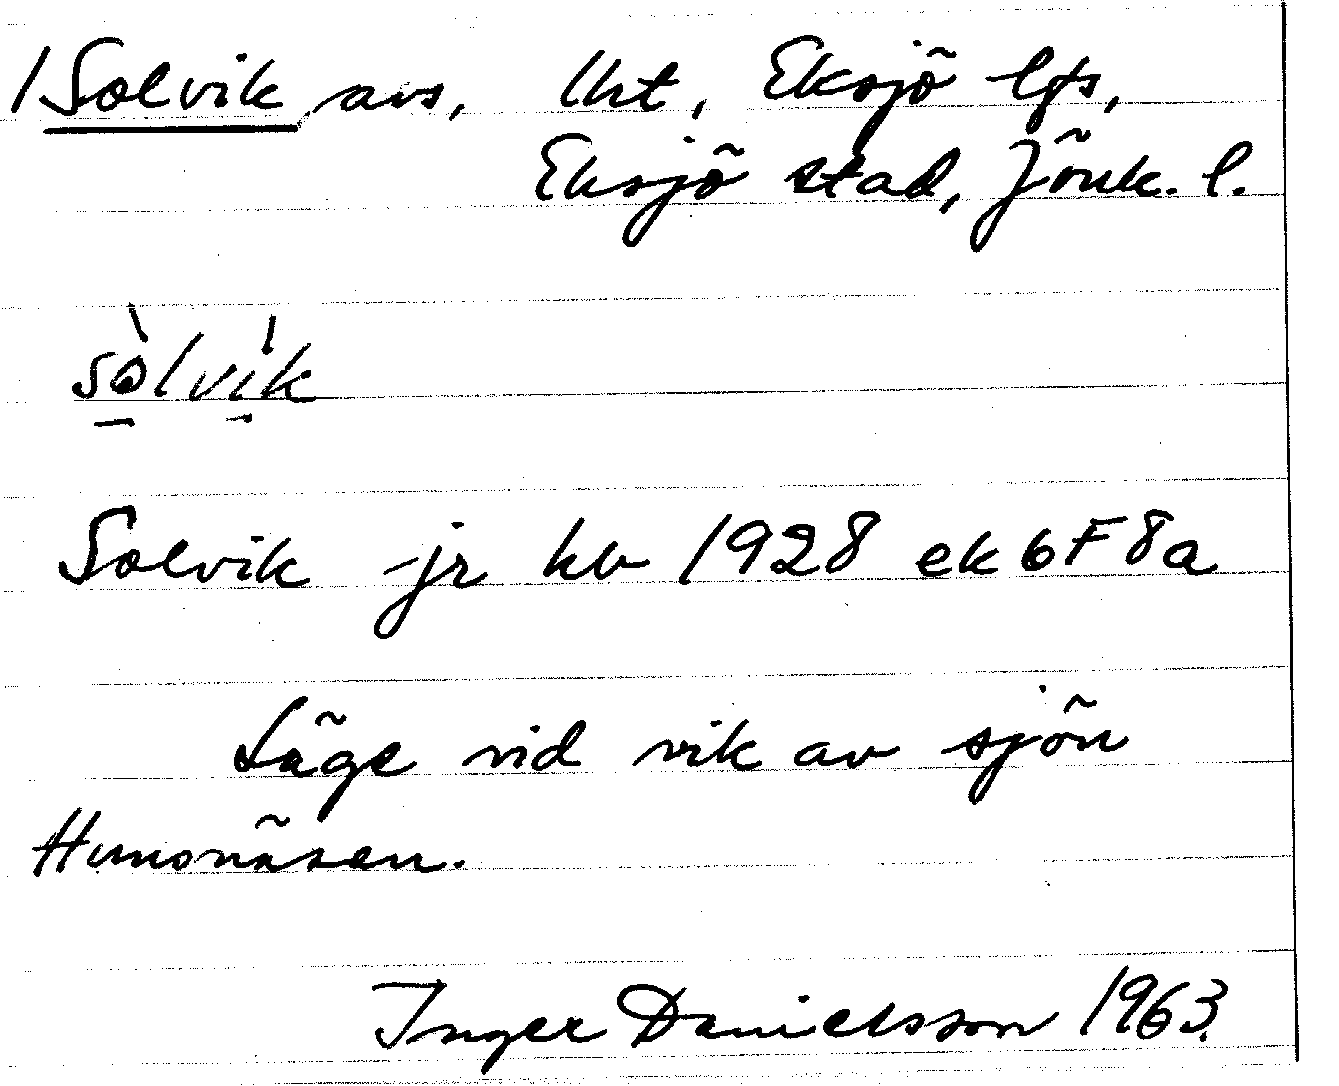 /Solvik, avs, lht, Eksjö lfs,
Eksjö stad, Jönk. l.
sòlvík
Solvik jr kb 1928 ek 6F8a
Läge vid vik av sjön
Hunsnäsen.
Inger Danielsson 1963.